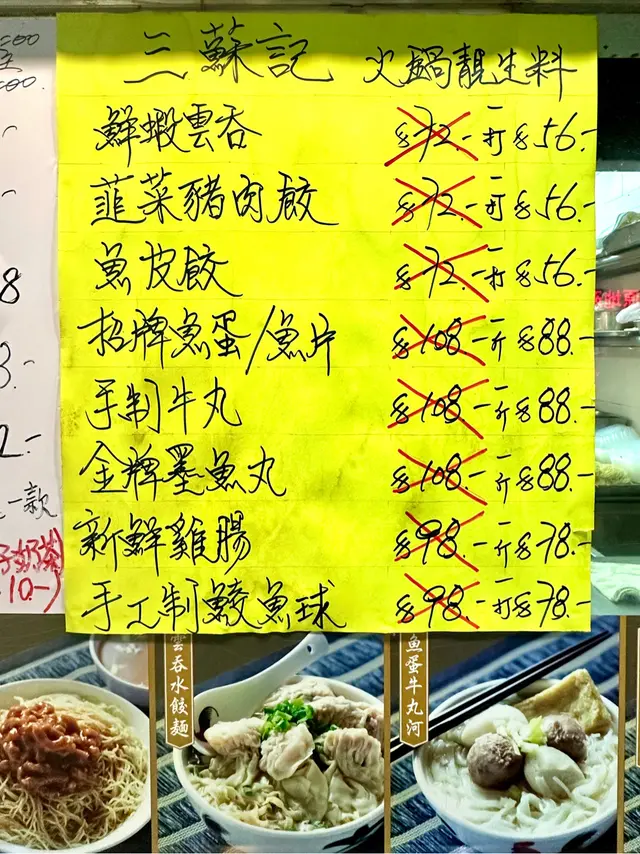 三蘇記 火鍋靚生料
鮮蝦雲吞 $72.- 一打 $56.-
韮菜豬肉餃 $72.- 一打 $56.-
魚皮餃 $72.- 一打 $56.-
招牌魚蛋/魚片 $108.- 一斤 $88.-
手制牛丸 $108.- 一斤 $88.-
金牌墨魚丸 $108.- 一斤 $88.-
新鮮雞腸 $98.- 一斤 $78.-
手工制鯪魚球 $98.- 一打 $78.-
8
3.-
2.-
一款
奶茶
10-)
雲吞水餃麵
魚蛋牛丸河